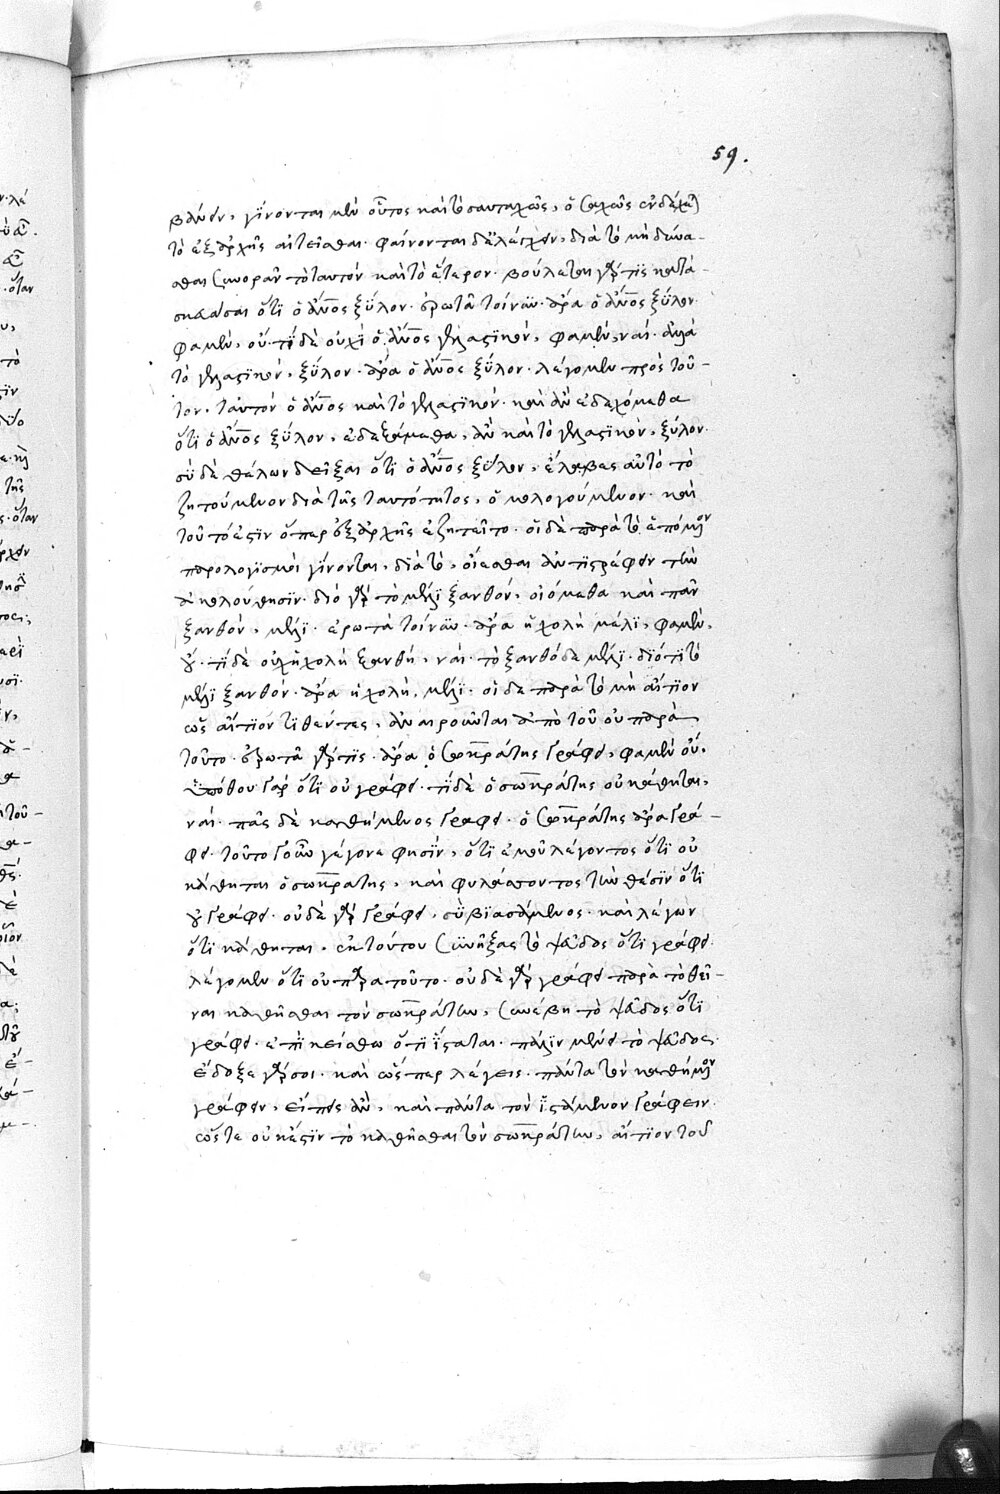 59.
βλέπειν, γίνονται μὲν οὗτος καὶ τοσαυταχῶς, ὁσαχῶς ἐνδέχεται
τὸ ἐξ ἀρχῆς αἰτεῖσθαι. φαίνονται δ' ἐλέγχειν, διὰ τὸ μὴ δύνα-
σθαι συνορᾶν τὸ ταυτὸν καὶ τὸ ἕτερον. βούλεται γάρ τις κατα-
σκευάσαι ὅτι ὁ ἄνος ξύλον. ἐρωτᾶ τοίνυν. ἆρα ὁ ἄνος ξύλον.
φαμὲν, οὔ. τί δὲ οὐχὶ ὁ ἄνος γελαστικόν, φαμὲν, ναί. ἀλλὰ
τὸ γελαστικόν, ξύλον. ἆρα ὁ ἄνος ξύλον. λέγομεν πρὸς τοῦ-
τον. ταυτὸν ὁ ἄνος καὶ τὸ γελαστικόν. καὶ ἂν ἐδεχόμεθα
ὅτι ὁ ἄνος ξύλον, ἐδεξάμεθα, ἂν καὶ τὸ γελαστικόν, ξύλον.
σὺ δὲ θέλων δεῖξαι ὅτι ὁ ἄνος ξύλον, ἔλαβες αὐτὸ τὸ
ζητούμενον διὰ τῆς ταυτότητος, ὁμολογούμενον. καὶ
τοῦτό ἐστιν ὅπερ ἐξ ἀρχῆς ἐζητεῖτο. οἱ δὲ παρὰ τὸ ἑπόμενον
παραλογισμοὶ γίνονται, διὰ τὸ, οἴεσθαι ἀντιστρέφειν τὴν
ἀκολούθησιν. διὸ γὰρ τὸ μέλι ξανθόν, οἰόμεθα καὶ πᾶν
ξανθόν, μέλι. ἐρωτᾶ τοίνυν. ἆρα ἡ χολὴ μέλι, φαμὲν,
οὔ. τί δὲ οὐχ ἡ χολὴ ξανθή, ναί. τὸ ξανθὸ δὲ μέλι. διότι τὸ
μέλι ξανθόν. ἆρα ἡ χολή, μέλι. οἱ δὲ παρὰ τὸ μὴ αἴτιον
ὡς αἴτιον τιθέντες, ἀναιροῦνται ἀπὸ τοῦ οὐ παρὰ
τοῦτο. ἐρωτᾶ γάρ τις. ἆρα ὁ σωκράτης γράφει, φαμὲν οὔ.
ὑπόθου γὰρ ὅτι οὐ γράφει. τί δὲ ὁ σωκράτης οὐ κάθηται,
ναί. πᾶς δὲ καθήμενος γράφει. ὁ σωκράτης ἄρα γρά-
φει. τοῦτο γοῦν γέγονε φησίν, ὅτι ἐμοῦ λέγοντος ὅτι οὐ
κάθηται ὁ σωκράτης, καὶ φυλάσσοντος τὴν θέσιν ὅτι
οὐ γράφει. οὐδὲ γὰρ γράφει, σὺ βιασάμενος καὶ λέγων
ὅτι κάθηται, ἐκ τούτου συνῆξας τὸ ψεῦδος ὅτι γράφει.
λέγομεν ὅτι οὐ παρὰ τοῦτο. οὐδὲ γὰρ γράφει παρὰ τὸ θεῖ-
ναι καθῆσθαι τὸν σωκράτην, συνέβη τὸ ψεῦδος ὅτι
γράφει. ἐπικείσθω ὅτι ἵσταται. πάλιν μένει τὸ ψεῦδος.
ἔδοξε γάρ σοι. καὶ ὥσπερ λέγεις, πάντα τὸν καθήμενον
γράφειν, εἰπὲ ἂν, καὶ πάντα τὸν ἱστάμενον γράφειν.
ὥστε οὐκ ἔστιν τὸ καθῆσθαι τὸν σωκράτην, αἴτιον τοῦ